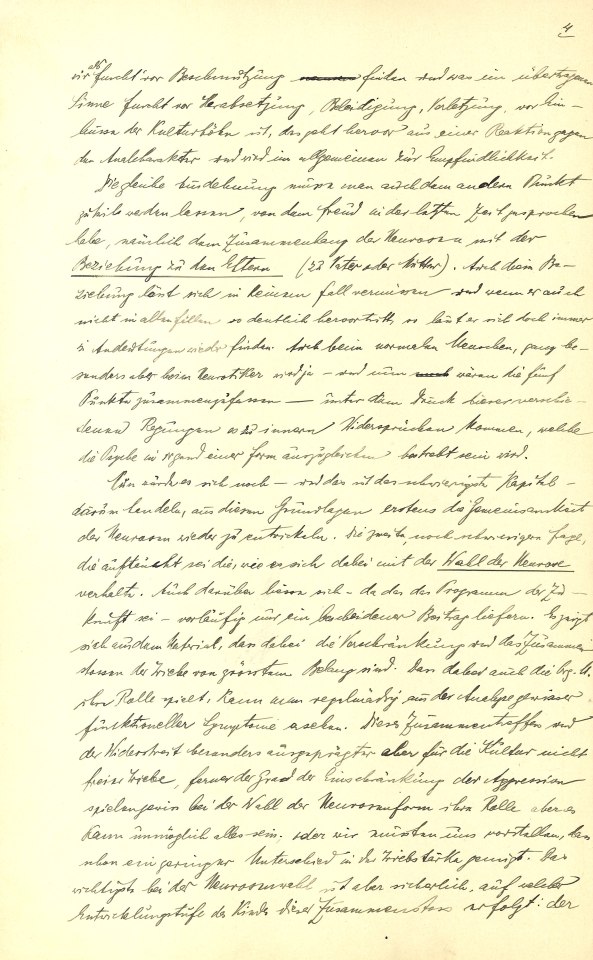 4
wir als Furcht vor Beschmutzung finden und was im übertragenen
Sinne Furcht vor Herabsetzung, Beleidigung, Verletzung, vor Ein-
busse der Kulturhöhe ist, das geht hervor aus einer Reaktion gegen
den Analcharakter und wird im allgemeinen zur Empfindlichkeit.
Die gleiche Ausdehnung muss man auch dem anderen Punkt
zuteil werden lassen, von dem Freud in der letzten Zeit gesprochen
habe, nämlich dem Zusammenhang der Neurosen mit der
Beziehung zu den Eltern (zu Vater oder Mutter). Auch diese Be-
ziehung lässt sich in keinem Fall vermissen und wenn er auch
nicht in allen Fällen so deutlich hervortritt, so lässt er sich doch immer
in Andeutungen wieder finden. Auch beim normalen Menschen, ganz be-
sonders aber beim Neurotiker wird ja – und nun wären die fünf
Punkte zusammenzufassen – unter dem Druck dieser verschie-
denen Regungen es zu innern Widersprüchen kommen, welche
die Psyche in irgend einer Form auszugleichen bestrebt sein wird.
Nun würde es sich noch – und das ist das schwierigste Kapitel –
darum handeln, aus diesen Grundlagen erstens die Gemeinsamkeit
der Neurosen wieder zu entwickeln. Die zweite, noch schwierigere Frage,
die auftaucht sei die, wie es sich dabei mit der Wahl der Neurose
verhalte. Auch darüber lasse sich – da das das Programm der Zu-
kunft sei – vorläufig nur ein bescheidener Beitrag liefern. Es zeigt
sich aus dem Material, dass dabei die Verschränkung und das Zusammen
stossen der Triebe von grösstem Belang sind. Dass dabei auch die Org. M.
ihre Rolle spielt, kann man regelmässig aus der Analyse gewisser
funktioneller Symptome ersehen. Dieses Zusammentreffen und
der Widerstreit besonders ausgeprägter aber für die Kultur nicht
freier Triebe, ferner der Grad der Einschränkung der Aggression
spielen gewiss bei der Wahl der Neurosenform ihre Rolle aber es
kann unmöglich alles sein, oder wir müssten uns vorstellen, dass
schon ein geringer Unterschied in der Triebstärke genügt. Das
wichtigste bei der Neurosenwahl ist aber sicherlich, auf welcher
Entwicklungsstufe des Kindes dieser Zusammenstoss erfolgt: der